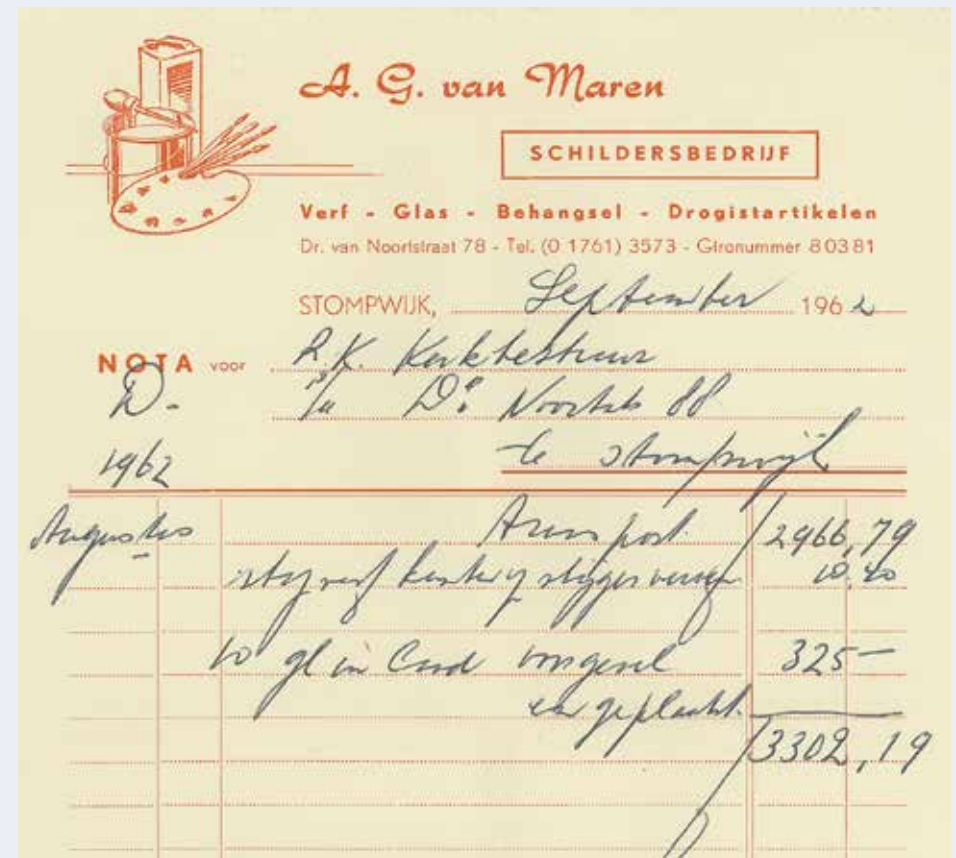 A. G. van Maren
SCHILDERSBEDRIJF
Verf - Glas - Behangsel - Drogistartikelen
Dr. van Noortstraat 78 - Tel. (0 1761) 3573 - Gironummer 80381
STOMPWIJK, September 1962
NOTA voor R.K. Kerkbestuur
D. Dr. Noortstr 88
1962 te Stompwijk
Augustus post 2966,79
10.40
10 gl in lood 325 —
en geplaatst.
3302,19